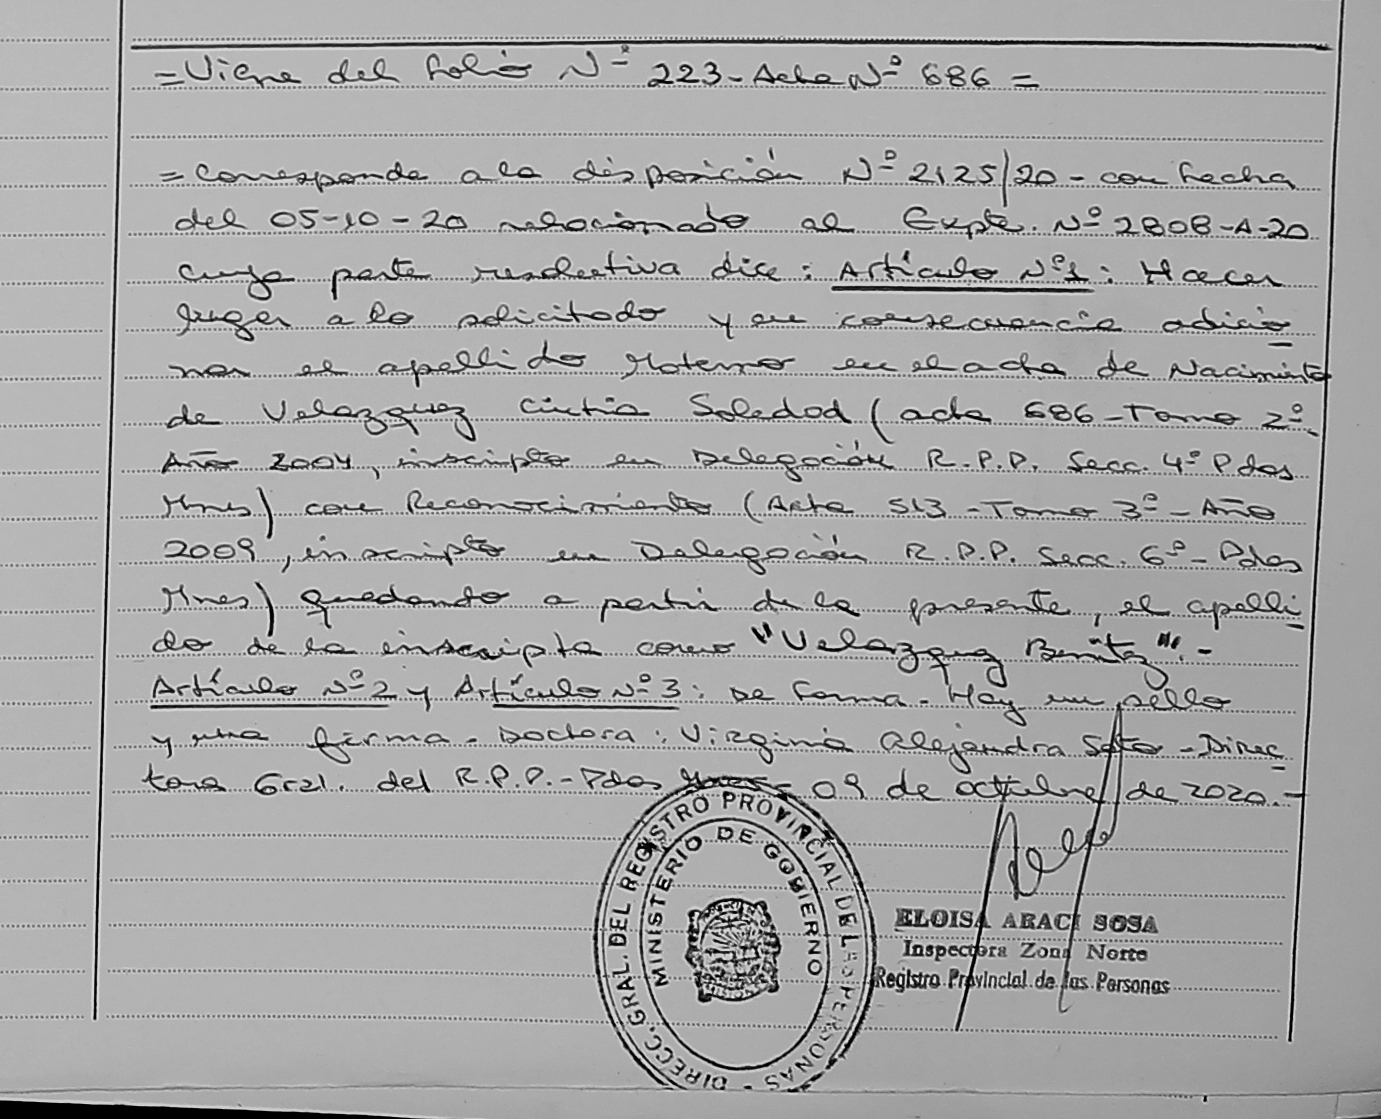 = Viene del folio Nº 223 - Acta Nº 686 =
= Corresponde a la disposición Nº 2125/20 - con fecha
del 05-10-20 relacionado al Expte. Nº 2808-A-20
cuya parte resolutiva dice: Artículo Nº1: Hacer
lugar a lo solicitado y en consecuencia adicio
nar el apellido Materno en el acta de Nacimiento
de Velazquez Cintia Soledad (acta 686 - Tomo 2º-
Año 2004, inscripto en Delegación R.P.P. Secc. 4º Pdas
Mnes) con Reconocimiento (Acta 513 - Tomo 3º - Año
2009, inscripto en Delegación R.P.P. Secc. 6º - Pdas
Mnes) quedando a partir de la presente, el apelli
do de la inscripta como "Velazquez Benítez".-
Artículo Nº 2 y Artículo Nº 3: De forma. Hay un sello
y una firma. Doctora: Virginia Alejandra Soto - Direc
tora Gral. del R.P.P. - Pdas Mnes - 09 de octubre de 2020.-
DIRECC. GRAL. DEL REGISTRO PROVINCIAL DE LAS PERSONAS -
MINISTERIO DE GOBIERNO
MISIONES
ELOISA ARACI SOSA
Inspectora Zona Norte
Registro Provincial de las Personas